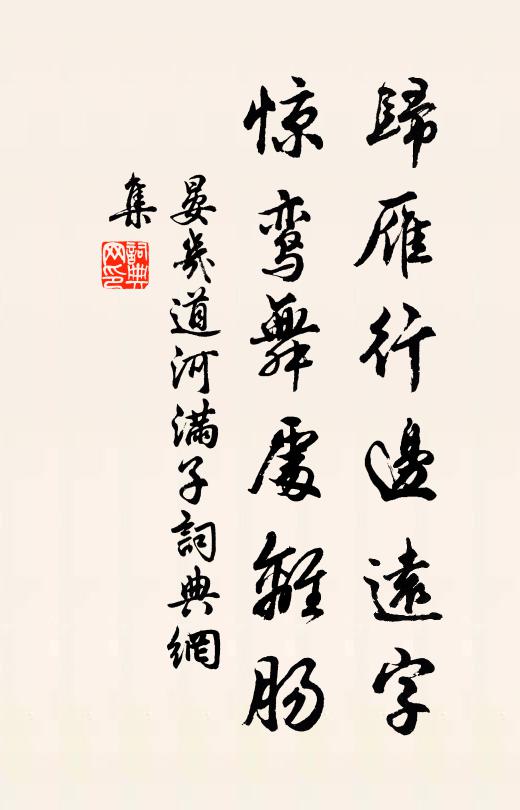 歸雁行邊遠字
惊鸾舞處離肠
晏幾道河滿子詞典網
集
詞典网印